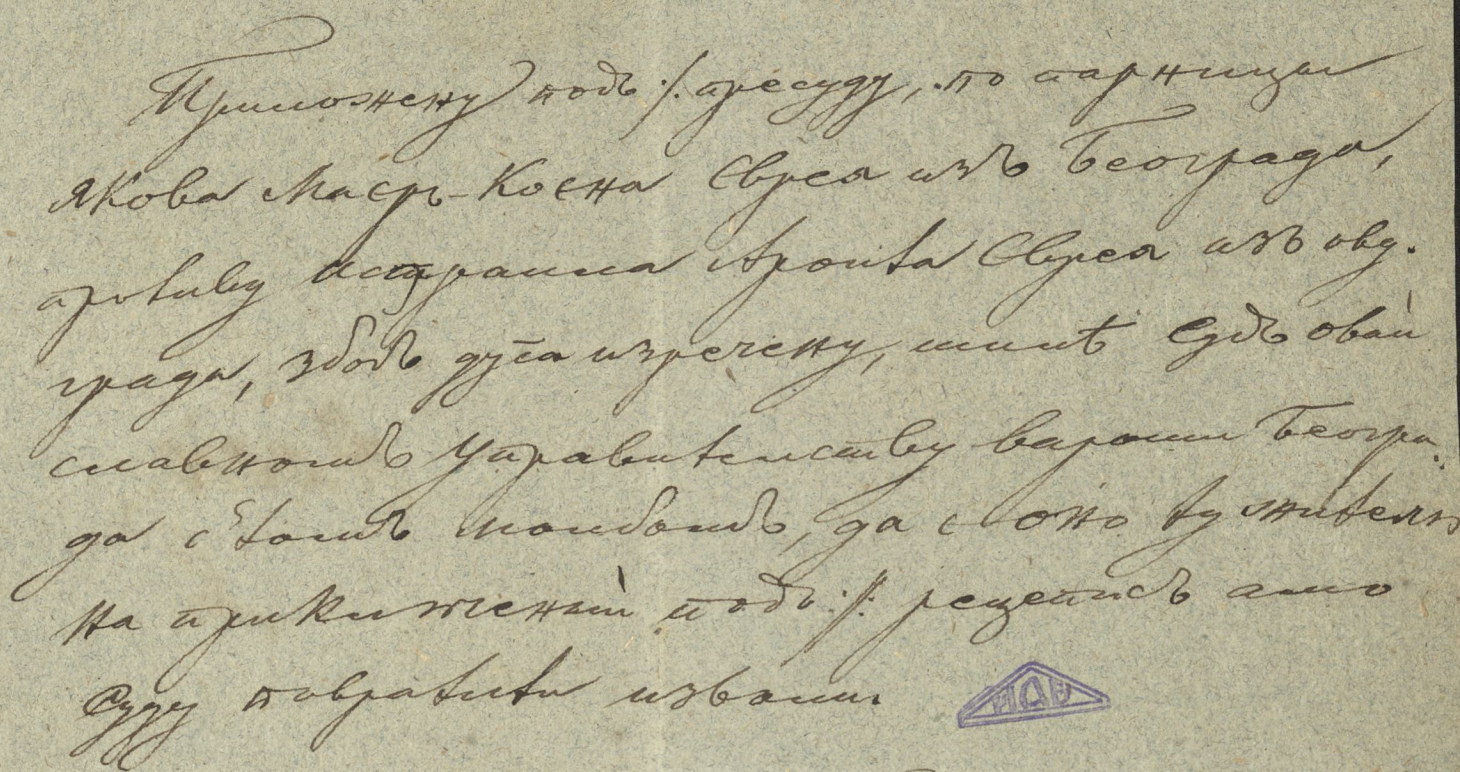 Приложену подъ ·/. пресуду, по парници
Якова Маеръ-Коена Евреа изъ Београда,
противу Истраила Арона Евреа изъ овд.
града, збогъ дуга изречену, шилѣ Судъ овай
славномъ Управителству вароши Београ.
да с' томъ молбомъ, да є оно тужителю
на приключеный подъ ·/: рецеписъ амо
Суду повратити изволи.
ИАБ